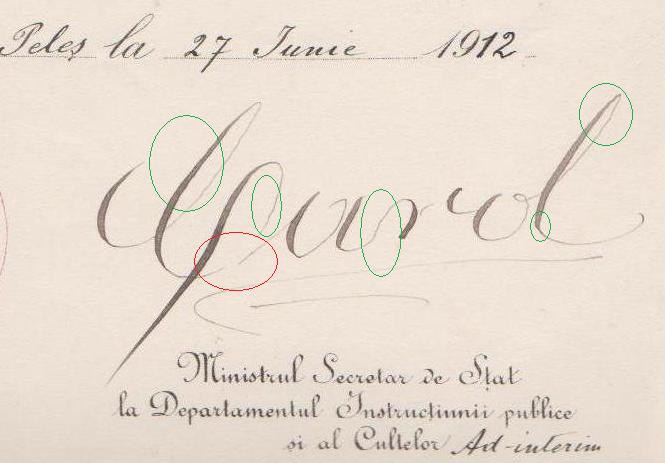 Peleș la 27 Iunie 1912
Carol
Ministrul Secretar de Stat
la Departamentul Instrucțiunii publice
și al Cultelor Ad-interim